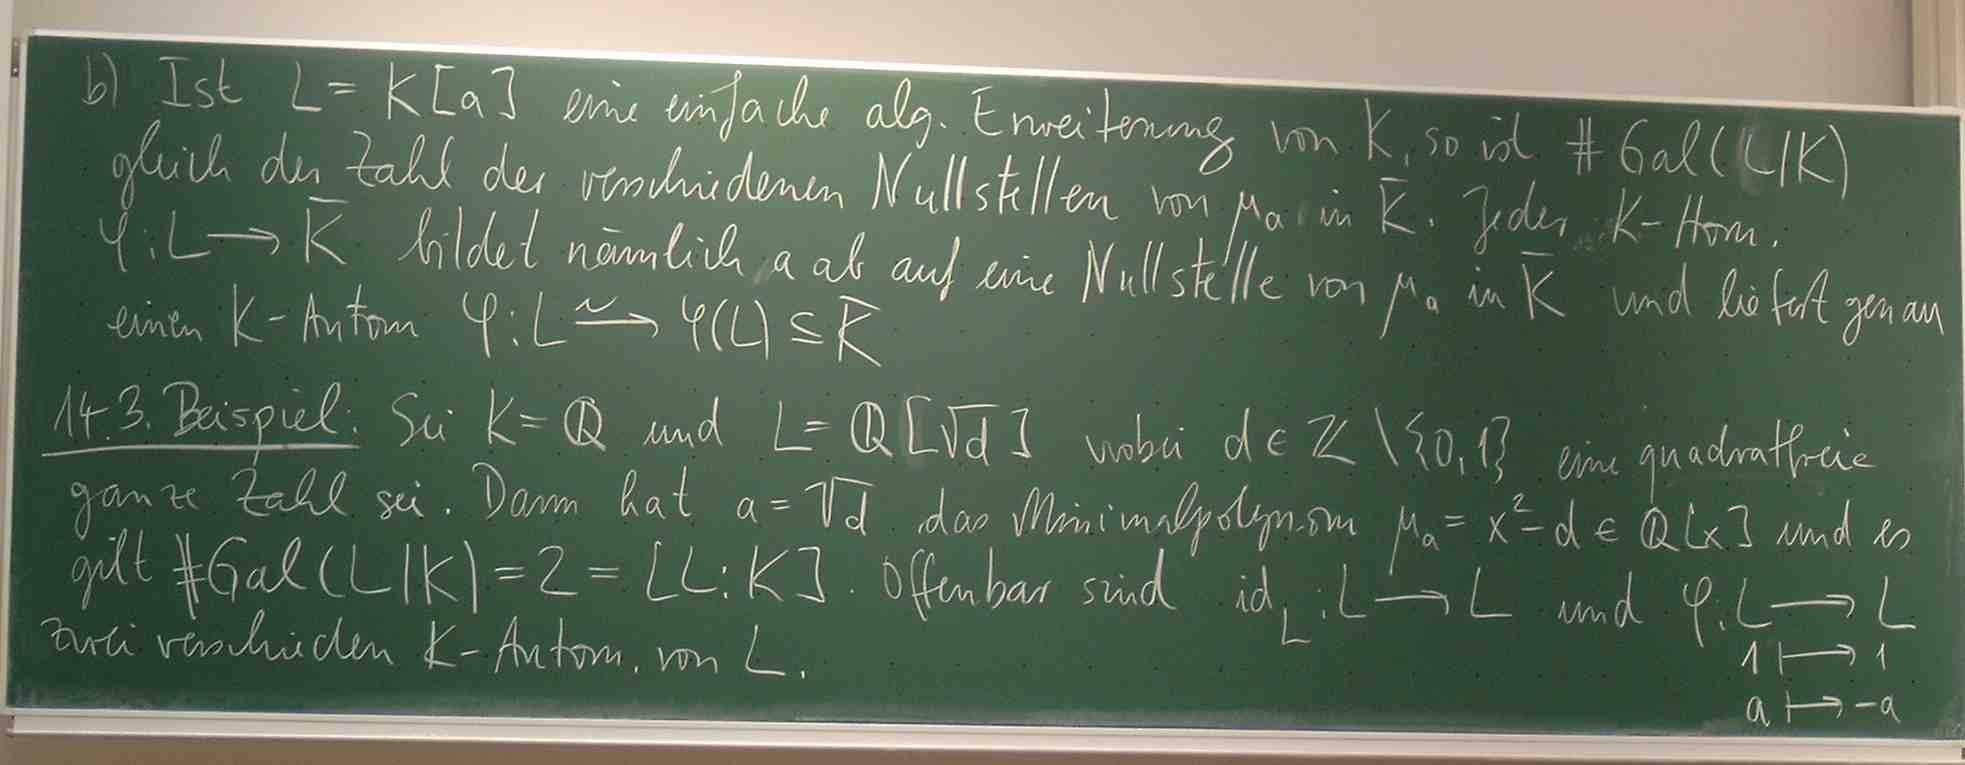 b) Ist L = K[a] eine einfache alg. Erweiterung von K, so ist # Gal(L|K)
gleich der Zahl der verschiedenen Nullstellen von μₐ in K̄. Jeder K-Hom.
φ: L → K̄ bildet nämlich a ab auf eine Nullstelle von μₐ in K̄ und liefert genau
einen K-Autom φ: L ⥲ φ(L) ⊆ K̄
14.3. Beispiel: Sei K = ℚ und L = ℚ[√d] wobei d ∈ ℤ \ {0,1} eine quadratfreie
ganze Zahl sei. Dann hat a = √d das Minimalpolynom μₐ = x² - d ∈ ℚ[x] und es
gilt #Gal(L|K) = 2 = [L:K]. Offenbar sind id_L : L → L und φ: L → L
1 ↦ 1
a ↦ -a
zwei verschieden K-Autom. von L.